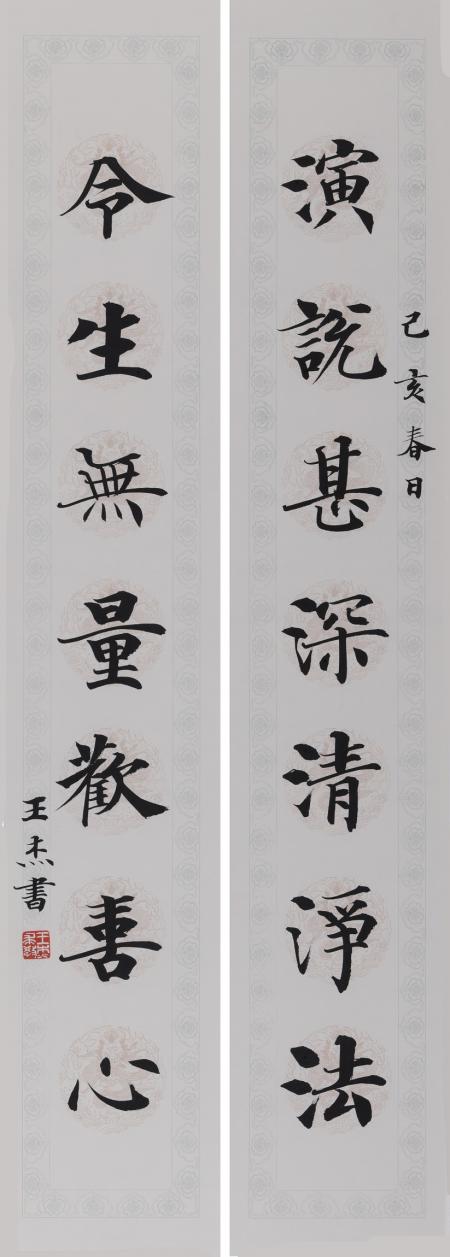 演説甚深清淨法
己亥春日
令生無量歡喜心
王杰書